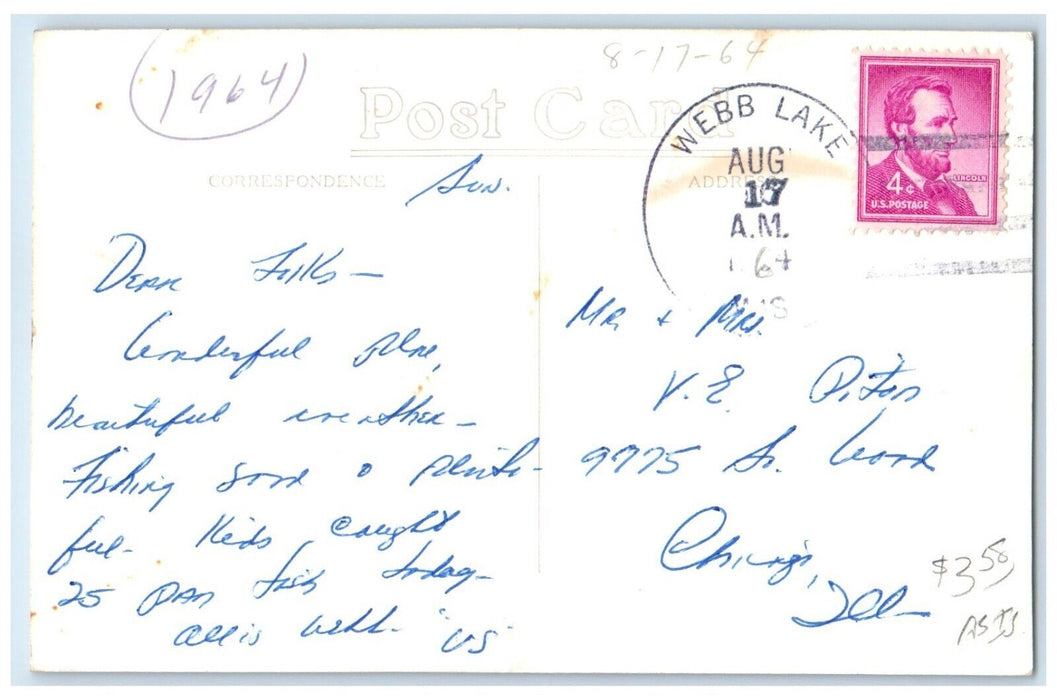 (1964)
8-17-64
Post Card
CORRESPONDENCE
ADDRESS
WEBB LAKE
AUG
17
A.M.
64
WIS
4¢
LINCOLN
U.S. POSTAGE
Sun.
Dear Folks —
Wonderful place,
beautiful weather —
Fishing good & plenti-
ful - Kids caught
25 pan fish today -
all is well - "US"
Mr. + Mrs.
V. E.
9775 So.
Chicago,
Ill
$3.50
AS IS